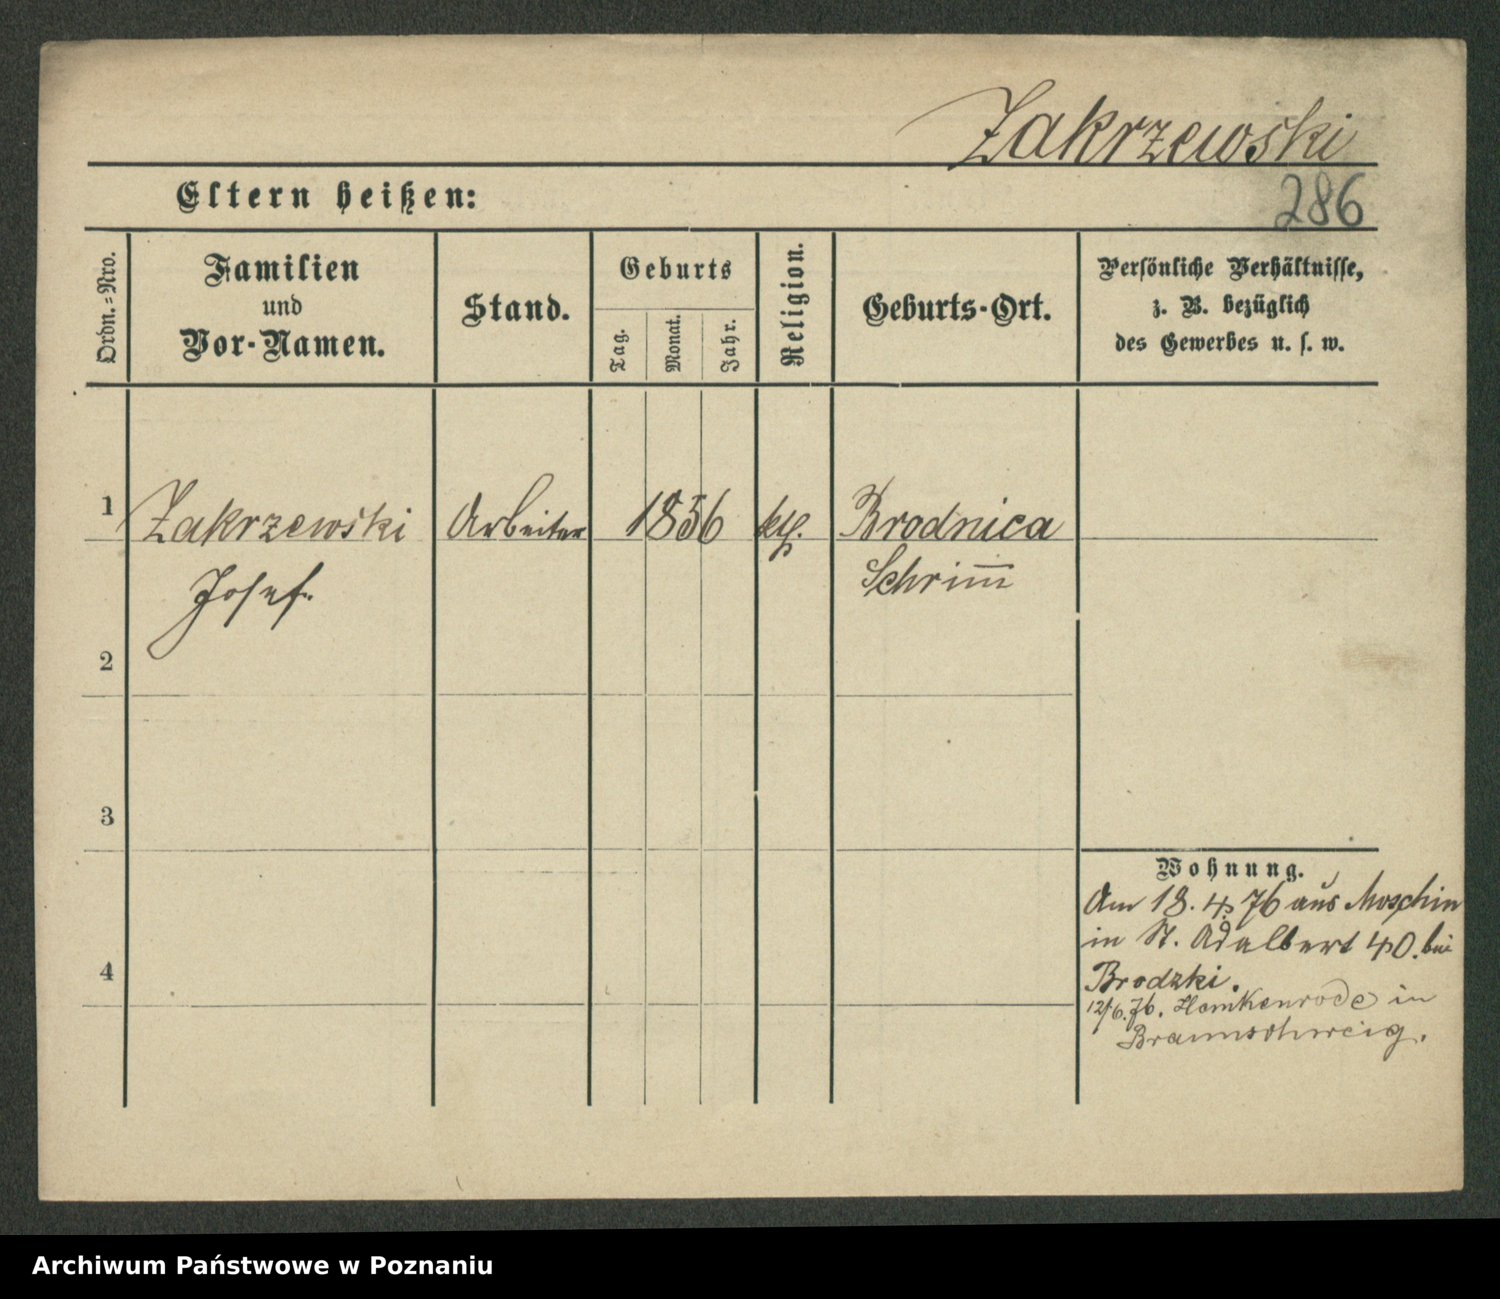 Zakrzewski
286
Eltern heißen:
Ordn.=Nro.
Familien
und
Vor-Namen.
Stand.
Geburts
Tag.
Monat.
Jahr.
Religion.
Geburts-Ort.
Persönliche Verhältnisse,
z. B. bezüglich
des Gewerbes u. s. w.
1
Zakrzewski
Josef.
Arbeiter
1856
kth.
Brodnica
Schrim̅
2
3
4
Wohnung.
Am 18. 4. 76 aus Moschin
in St. Adalbert 40. bei
Brodzki.
12/6. 76. Hemkenrode in
Braunschweig.
Archiwum Państwowe w Poznaniu